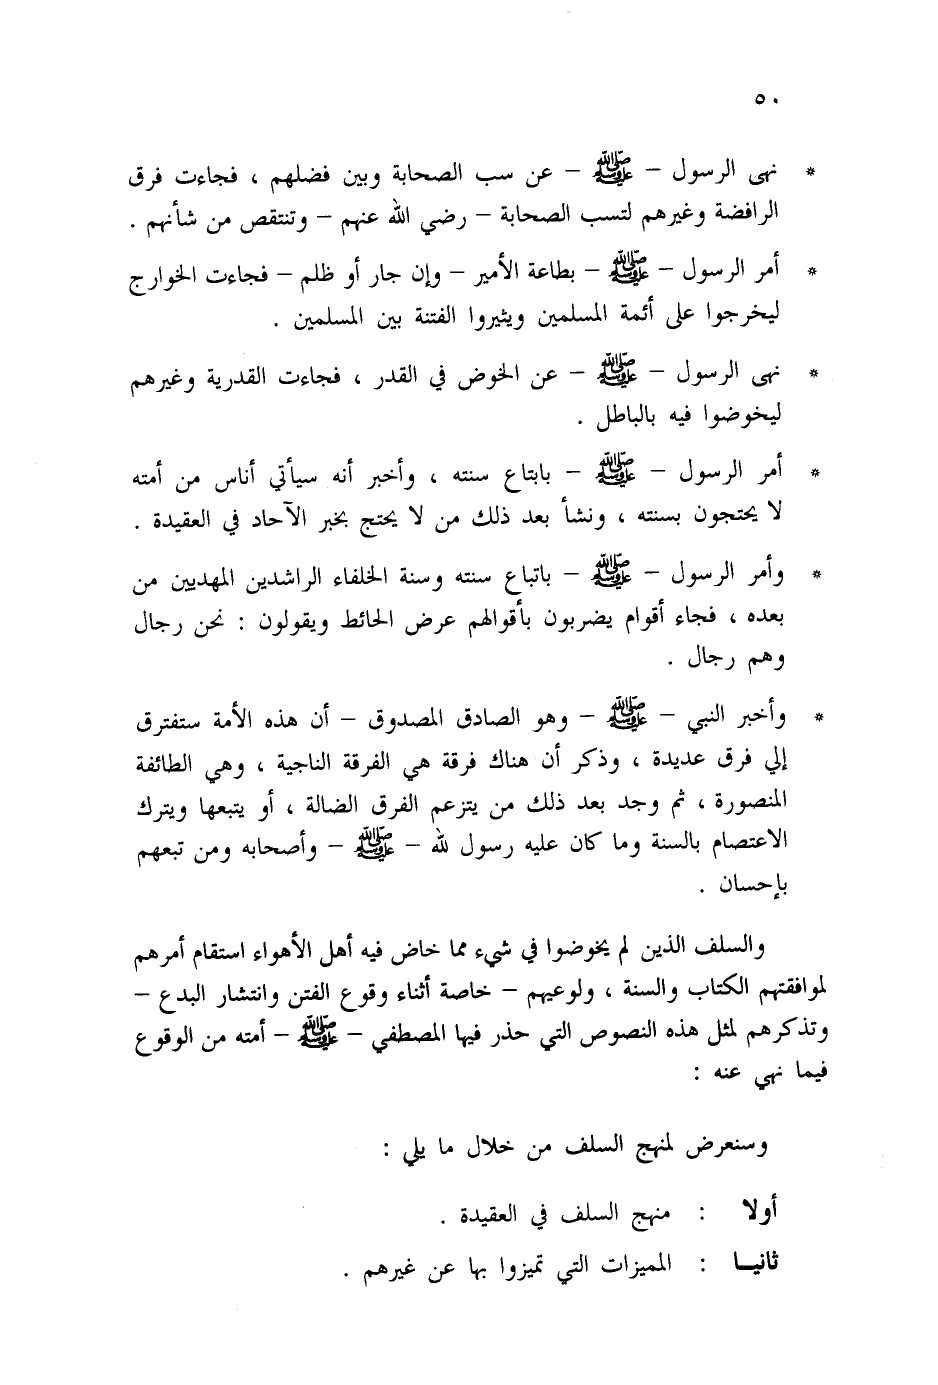 ٥٠
* نهى الرسول – ﷺ – عن سب الصحابة وبين فضلهم ، فجاءت فرق
الرافضة وغيرهم لتسب الصحابة – رضي الله عنهم – وتنتقص من شأنهم .
* أمر الرسول – ﷺ – بطاعة الأمير – وإن جار أو ظلم – فجاءت الخوارج
ليخرجوا على أئمة المسلمين ويثيروا الفتنة بين المسلمين .
* نهى الرسول – ﷺ – عن الخوض في القدر ، فجاءت القدرية وغيرهم
ليخوضوا فيه بالباطل .
* أمر الرسول – ﷺ – بابتاع سنته ، وأخبر أنه سيأتي أناس من أمته
لا يحتجون بسنته ، ونشأ بعد ذلك من لا يحتج بخبر الآحاد في العقيدة .
* وأمر الرسول – ﷺ – باتباع سنته وسنة الخلفاء الراشدين المهديين من
بعده ، فجاء أقوام يضربون بأقوالهم عرض الحائط ويقولون : نحن رجال
وهم رجال .
* وأخبر النبي – ﷺ – وهو الصادق المصدوق – أن هذه الأمة ستفترق
إلي فرق عديدة ، وذكر أن هناك فرقة هي الفرقة الناجية ، وهي الطائفة
المنصورة ، ثم وجد بعد ذلك من يتزعم الفرق الضالة ، أو يتبعها ويترك
الاعتصام بالسنة وما كان عليه رسول لله – ﷺ – وأصحابه ومن تبعهم
بإحسان .
والسلف الذين لم يخوضوا في شيء مما خاض فيه أهل الأهواء استقام أمرهم
لموافقتهم الكتاب والسنة ، ولوعيهم – خاصة أثناء وقوع الفتن وانتشار البدع –
وتذكرهم لمثل هذه النصوص التي حذر فيها المصطفي – ﷺ – أمته من الوقوع
فيما نهي عنه :
وسنعرض لمنهج السلف من خلال ما يلي :
أولا : منهج السلف في العقيدة .
ثانيـا : المميزات التي تميزوا بها عن غيرهم .